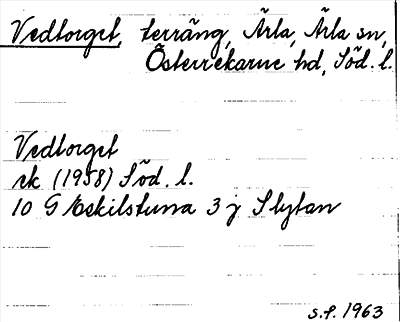 Vedtorget, terräng, Ärla, Ärla sn,
Österrekarne hd, Söd. l.
Vedtorget
rk (1958) Söd. l.
10 G Eskilstuna 3 j Slytan
s.f. 1963